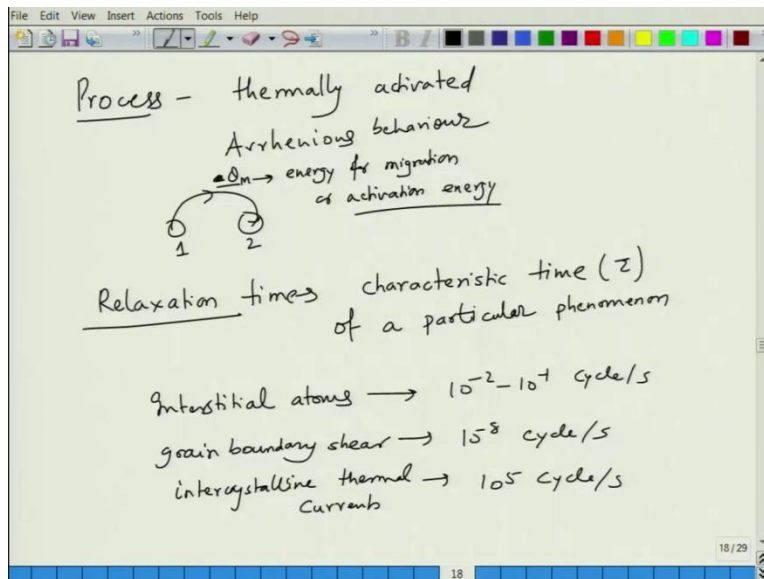 File Edit View Insert Actions Tools Help
B I
Process - thermally activated
Arrhenious behaviour
Q_M → energy for migration
or activation energy
1 2
Relaxation times characteristic time (τ)
of a particular phenomenon
Interstitial atoms → 10^-2 - 10^-1 cycle/s
grain boundary shear → 10^-8 cycle/s
intercrystalline thermal → 10^5 cycle/s
currents
18/29
18